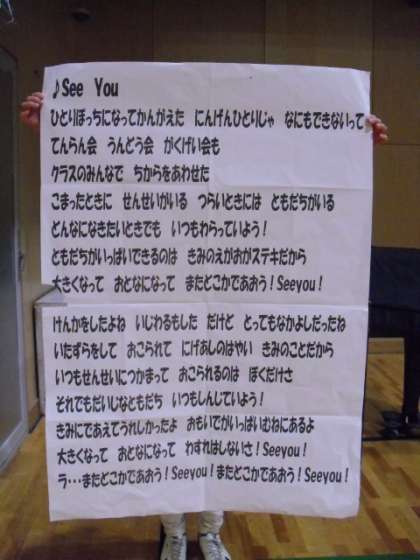 ♪See You
ひとりぼっちになってかんがえた にんげんひとりじゃ なにもできないって
てんらん会 うんどう会 がくげい会も
クラスのみんなで ちからをあわせた
こまったときに せんせいがいる つらいときには ともだちがいる
どんなになきたいときでも いつもわらっていよう!
ともだちがいっぱいできるのは きみのえがおがステキだから
大きくなって おとなになって またどこかであおう!Seeyou!
けんかをしたよね いじわるもした だけど とってもなかよしだったね
いたずらをして おこられて にげあしのはやい きみのことだから
いつもせんせいにつかまって おこられるのは ぼくだけさ
それでもだいじなともだち いつもしんじていよう!
きみにであえてうれしかったよ おもいでがいっぱいむねにあるよ
大きくなって おとなになって わすれはしないさ!Seeyou!
ラ・・・またどこかであおう!Seeyou!またどこかであおう!Seeyou!